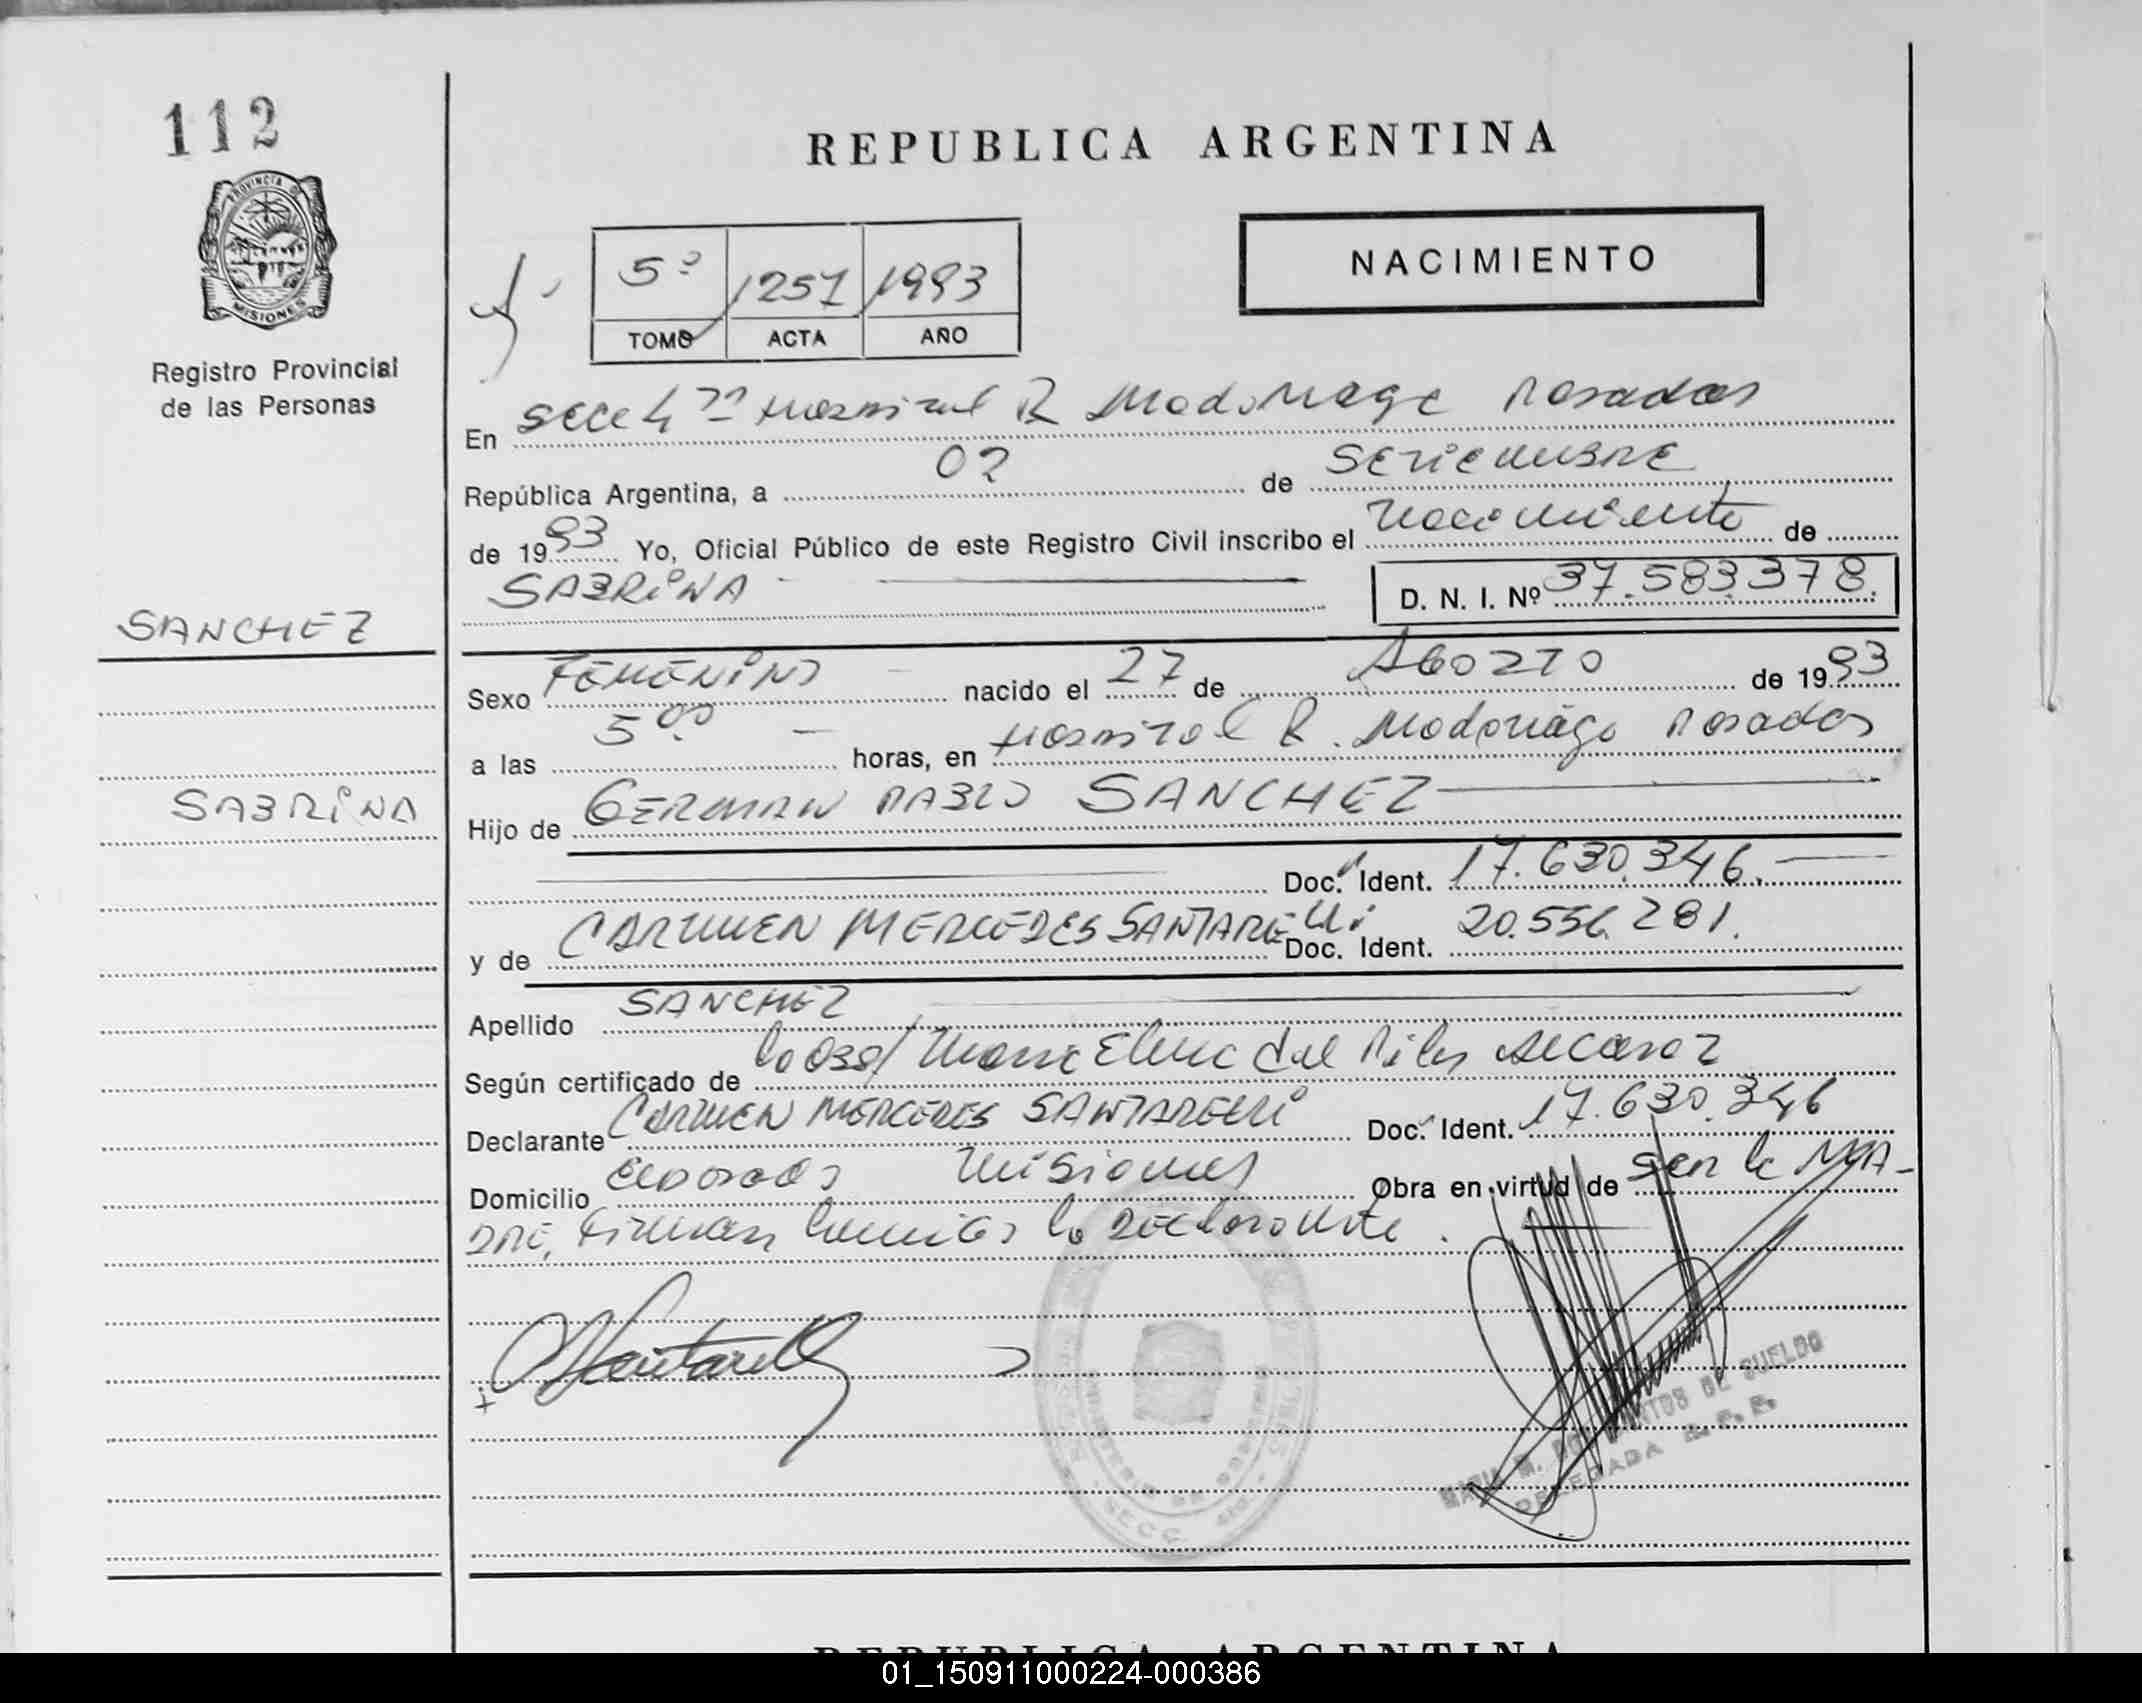 112
REPUBLICA ARGENTINA
PROVINCIA DE
MISIONES
NACIMIENTO
5º 1257 1993
TOMO ACTA AÑO
Registro Provincial
de las Personas
En Secc 4ta Hospital R Madariaga Posadas
República Argentina, a 02 de SETIEMBRE
de 1993 Yo, Oficial Público de este Registro Civil inscribo el Nacimiento de
SABRINA D. N. I. Nº 37.583.378.
SANCHEZ
Sexo FEMENINO nacido el 27 de AGOSTO de 1993
a las 500 horas, en Hospital R. Madariaga Posadas
SABRINA
Hijo de GERMAN PABLO SANCHEZ
Doc. Ident. 17.630.346.
y de CARMEN MERCEDES SANTARELLI Doc. Ident. 20.556.281.
Apellido SANCHEZ
Según certificado de la Obst/ Maria Elena del Pilar
Declarante CARMEN MERCEDES SANTARELLI Doc. Ident. 17.630.346
Domicilio Eldorado Misiones Obra en virtud de ser la MA-
DRE, Firman la Declarante.
DELEGADA
REPUBLICA ARGENTINA
01_150911000224-000386